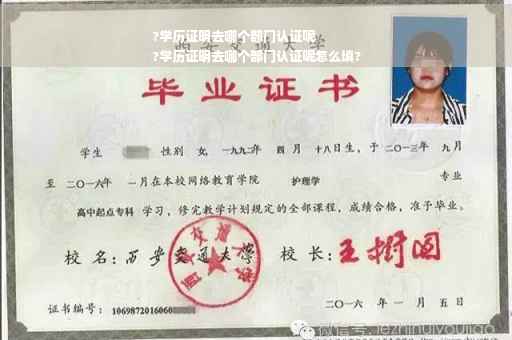 ?学历证明去哪个部门认证呢
西安交通大学
?学历证明去哪个部门认证呢怎么填?
毕业证书
学生 性别 女, 一九九二年 四 月 十八日生, 于 二〇一三年 九 月
至 二〇一六年 一月在本校网络教育学院 护理学 专业
高中起点专科 学习, 修完教学计划规定的全部课程, 成绩合格, 准予毕业。
校 名: 西安交通大学 校 长: 王树国
西安交通大学
证书编号: 1069872016060
二〇一六 年 一 月 五 日
微信号: lezhihuiyoujiao